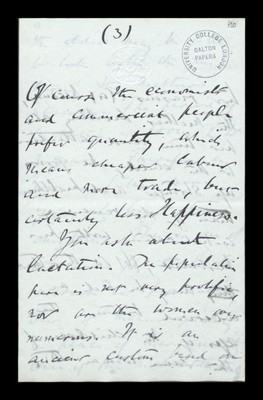 (3)
UNIVERSITY COLLEGE LONDON
GALTON
PAPERS
Of course the economists
and commercial people
prefer quantity, which
means cheaper labour
and more trade, but
certainly less Happiness.
You ask about
lactation. The population
here is not very prolific,
nor are the women over
numerous. It is an
ancient custom based on